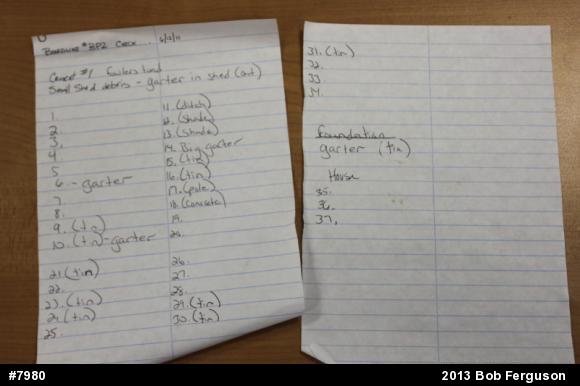 BOARDLINE #BP2 CHECK. 6/12/11
Small Shed debris - garter in shed (out)
1.
2.
3.
4.
5
6 - garter
7.
8.
9. (tin)
10. (tin) - garter
21. (tin)
22.
23. (tin)
24. (tin)
25.
11. (ditch)
12. (shade)
13. (shade)
14. Big garter
15. (tin)
16. (tin)
17. (pole)
18. (concrete)
19.
20.
26.
27.
28.
29. (tin)
30. (tin)
31. (tin)
32.
33
34.
foundation
garter (tin)
House
35.
36.
37.
#7980
2013 Bob Ferguson